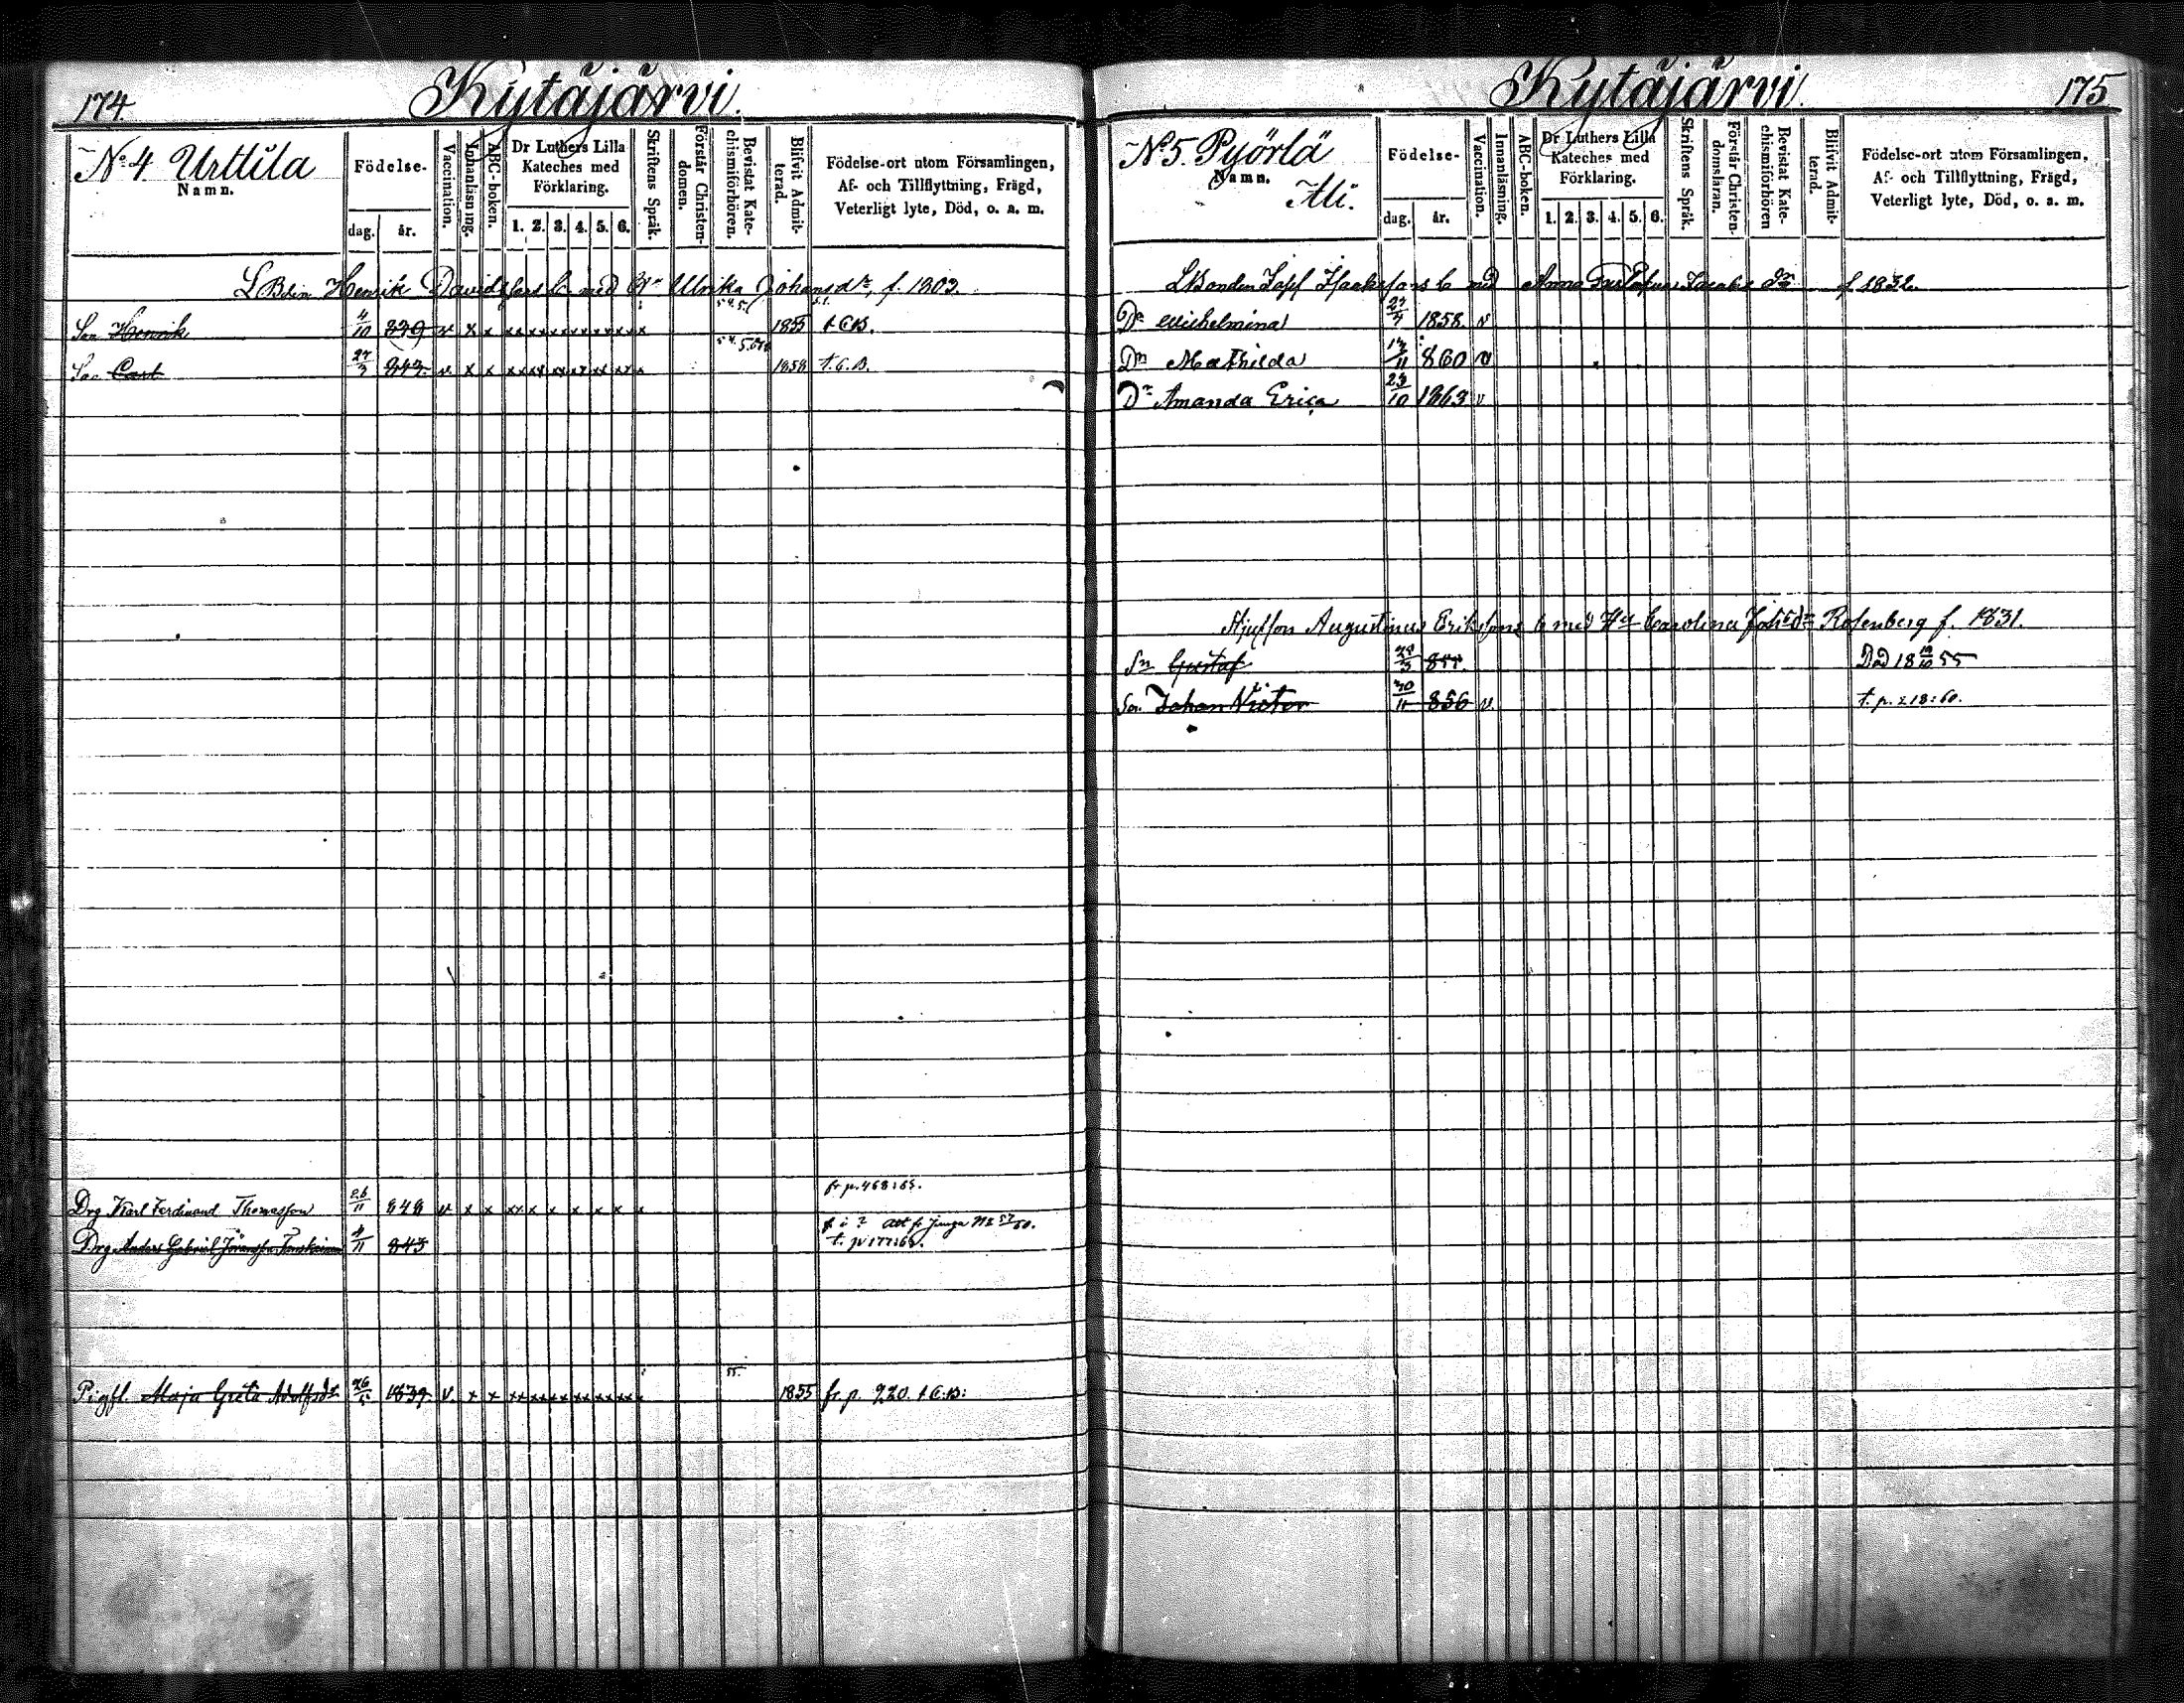 174. Kytäjärvi.
No 4. Urttila
Namn.
Födelse-
dag. år.
Vaccination.
Innanläsning.
ABC-boken.
Dr Luthers Lilla Kateches med Förklaring.
1. 2. 3. 4. 5. 6.
Skriftens Språk.
Förstår Christendomen.
Bevistat Katechismiförhören.
Blifvit Admitterad.
Födelse-ort utom Församlingen,
Af- och Tillflyttning, Frägd,
Veterligt lyte, Död, o. a. m.
Henrik Davidssons b. med H Ulrika Johansdr, f. 1803.
Son Henrik 4/10 839 v x x xxxxxxxxxxx x 1855 t.C.B.
Son Carl 27/3 843 v. x x xxxx xx xx xx xx x 1858 t.C.B.
fr p. 468:65.
Drg Karl Ferdinand Thomasson 26/11 848 v x x xx x x x x x x
Drg Anders Gabriel 4/11 843
55.
Pig Maja Greta Adolfsdr 26/5 1839. v. x x xxxxxxxxxxxx 1855 fr. p. 220. t C.B:
Kytäjärvi. 175
No 5. Pyörlä
Namn.
Ali.
Födelse-
dag. år.
Vaccination.
Innanläsning.
ABC-boken.
Dr Luthers Lilla Kateches med Förklaring.
1. 2. 3. 4. 5. 6.
Skriftens Språk.
Förstår Christendomsläran.
Bevistat Katechismiförhören
Blifvit Admitterad.
Födelse-ort utom Församlingen,
Af- och Tillflyttning, Frägd,
Veterligt lyte, Död, o. a. m.
Anna Gustafva Jacobs dr f 1832.
Dr Wilhelmina 1858. v
Dr Mathilda 860 v
Dr Amanda Erica 23/10 1863 v
Augustinus Erikssons b med H Carolina Johsdr Rosenberg f. 1831.
Sn Gustaf 855. Död 18 55
Son Johan Victor 30/11 856 v. t. p. 218:60.